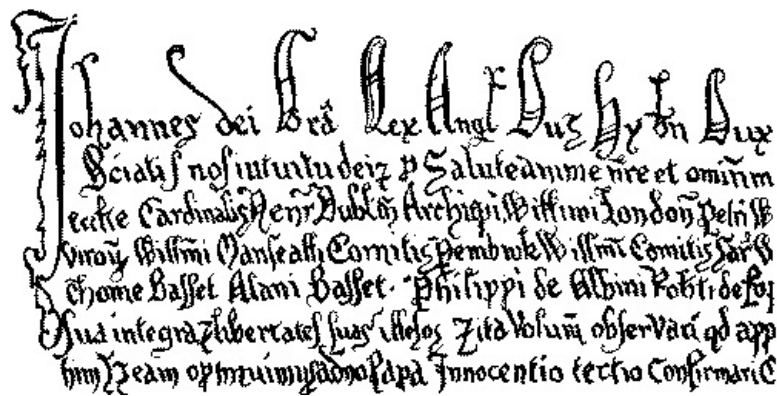 Johannes dei Grã Rex Angl Dns Hybn Dux
Sciatis nos intuitu dei ⁊ p Salute anime nre et omnm
eccle Cardinalis Henr Dublin Archiepi Willimi London Petri W
viroru Willmi Mariscalli Comitis Pembrok Willmi Comitis Sar W
Thome Basset Alani Basset Philippi de Albini Robti de
Sua integra ⁊ libertates suas illesas ⁊ ita Volum observari qd app
him ⁊ eam optinuimus a dno Papa Innocentio tertio Confirmari